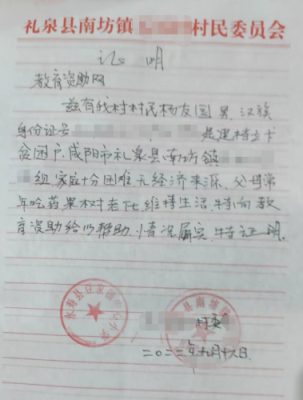 礼泉县南坊镇 村民委员会
证 明
教育资助网
兹有我村村民杨友国 男 汉族
身份证号 是建档立卡
贫困户,咸阳市礼泉县南坊镇
组 家庭十分困难无经济来源、父母常
年吃药果树老化维持生活,特向教
育资助给以帮助,情况属实 特证明.
村委
二〇二二年九月十六日